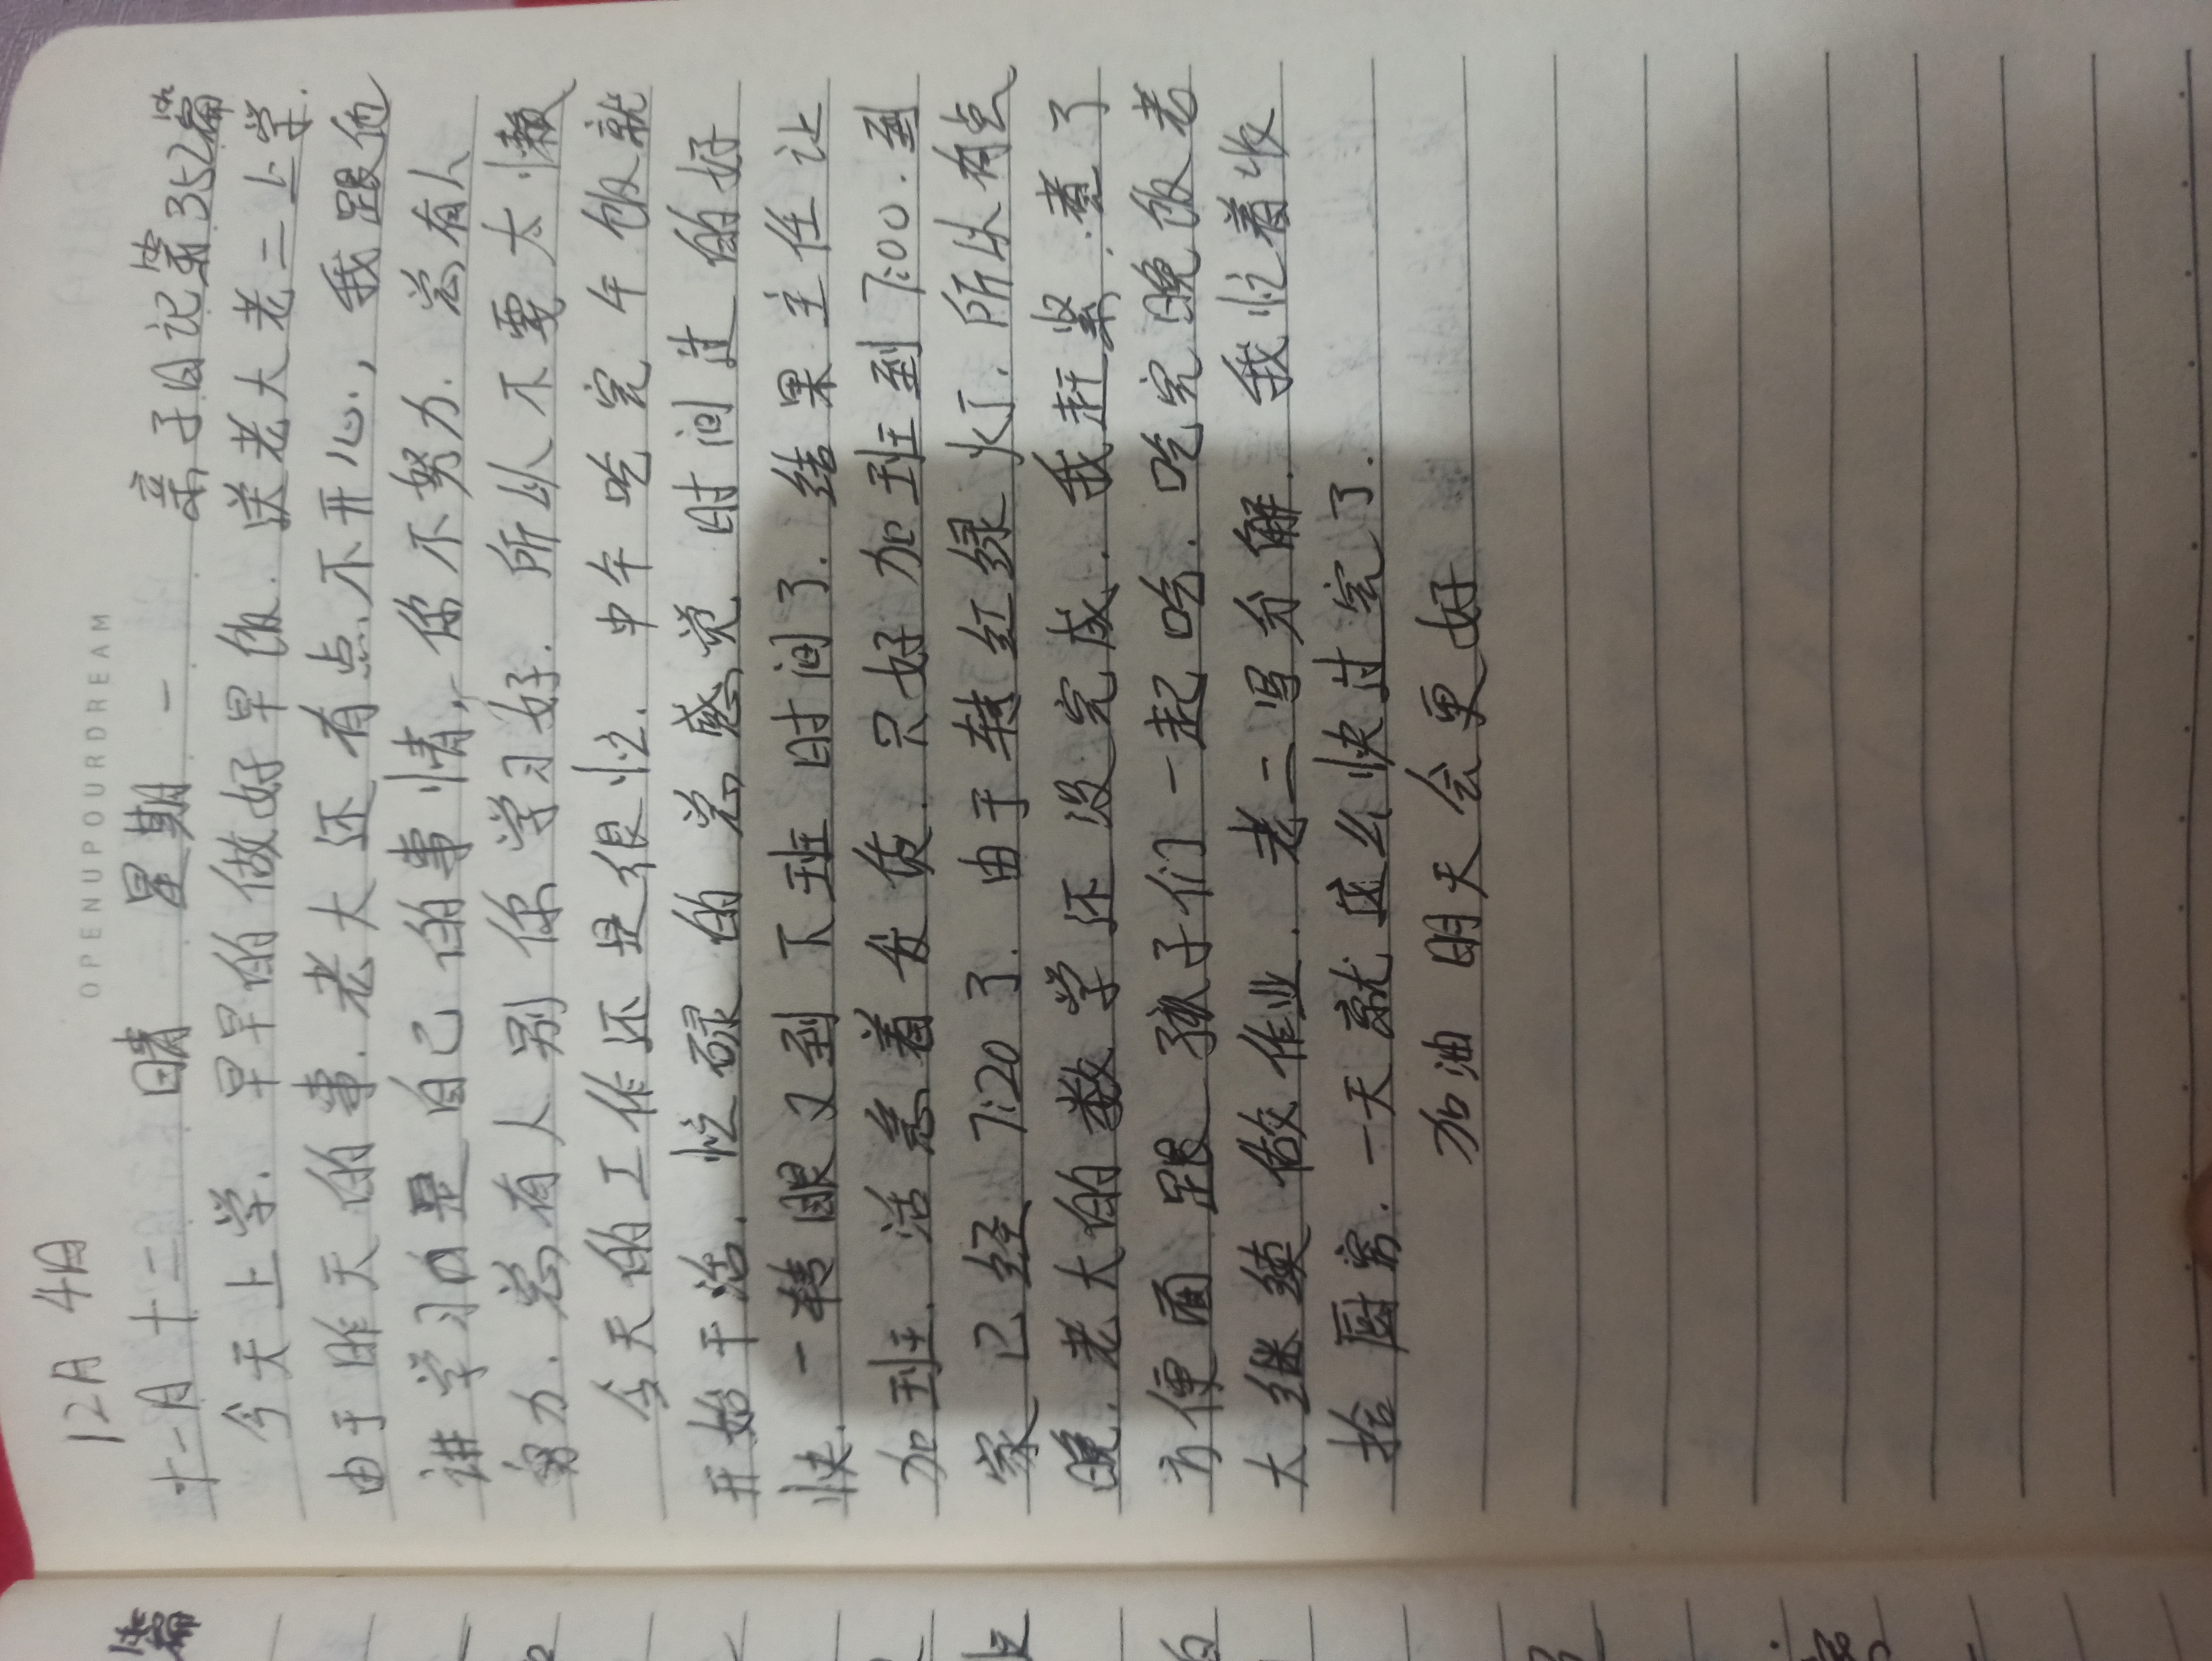 OPENUPOURDREAM
12月4日
十一月十二 晴 星期一 亲子日记第352篇
今天上学.早早的做好早饭.送老大老二上学.
由于昨天的事.老大还有点不开心,我跟他
讲学习自是自己的事情,你不努力.总有人
努力.总有人别你学习好.所以不要太懒
今天的工作还是很忙.中午吃完午饭就
开始干活.忙碌的总感觉时间过的好
快.一转眼又到下班时间了.结果主任让
加班.活急着发货.只好加班到7:00.到
家已经7:20了.由于转红绿火丁.所以有点
晚.老大的数学还没完成.我赶紧.煮了
方便面跟孩子们一起吃.吃完晚饭老
大继续做作业.老二写分解.我忙着收
拾厨房.一天就这么快过完了.
加油明天会更好
篇